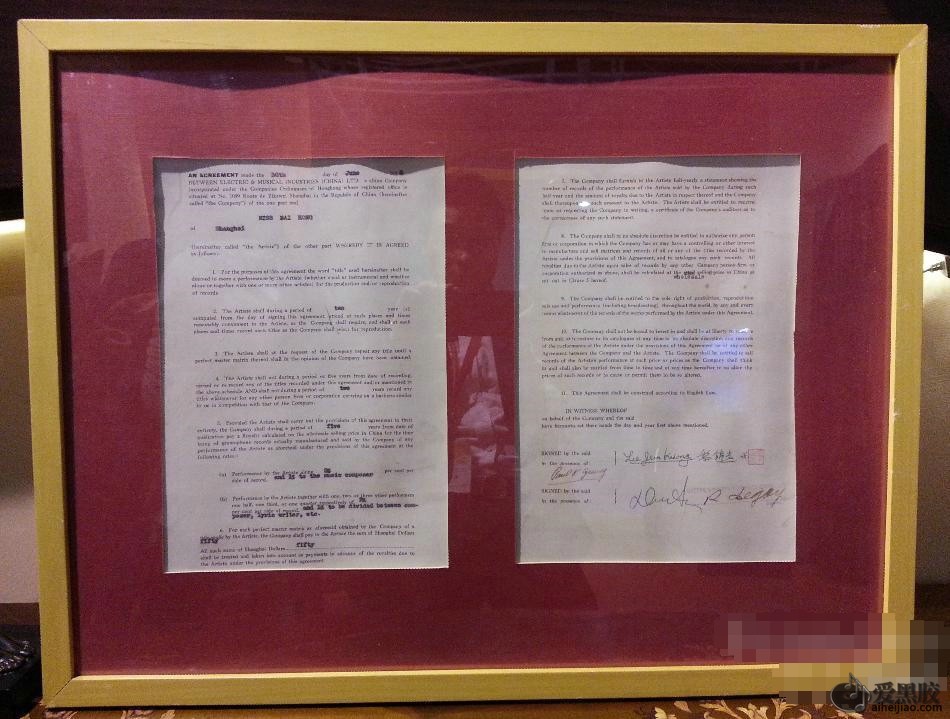 AN AGREEMENT made the 30th day of June
BETWEEN ELECTRIC & MUSICAL INDUSTRIES (CHINA) LTD. a china Company
incorporated under the Companies Ordinances of Hongkong whose registered office is
situated at No. 1099 Route de Zikawei Shanghai in the Republic of China (hereinafter
called "the Company") of the one part and
MISS BAI KONG
of Shanghai
(hereinafter called "the Artiste") of the other part WHEREBY IT IS AGREED
as follows:
1. For the purposes of this agreement the word "title" used hereinafter shall be
deemed to mean a performance by the Artiste (whether vocal or instrumental and whether
alone or together with one or more other artistes) for the production and/or reproduction
of records.
2. The Artiste shall during a period of two year (s)
computed from the day of signing this agreement attend at such places and times
reasonably convenient to the Artiste, as the Company shall require, and shall at such
places and times record such titles as the Company shall select for reproduction.
3. The Artiste shall at the request of the Company repeat any title until a
perfect master matrix thereof shall in the opinion of the Company have been obtained.
4. The Artiste shall not during a period of five years from date of recording,
record or re-record any of the titles recorded under this agreement and/or mentioned in
the above schedule AND shall not during a period of two years record any
titles whatsoever for any other person firm or corporation carrying on a business similar
to or in competition with that of the Company.
5. Provided the Artiste shall carry out the provisions of this agreement in their
entirety, the Company shall during a period of five years from date of
publication pay a Royalty calculated on the wholesale selling price in China for the time
being of gramophone records actually manufactured and sold by the Company of any
performance of the Artiste as obtained under the provisions of this agreement at the
following rates:
(a) Performance by the Artiste alone per cent per
side of record. and 1% to the music composer
(b) Performance by the Artiste together with one, two or three other performers
one half, one third, or one quarter respectively of
per cent per side of record. and 1% to be divided between com-
poser, lyric writer, etc.
6. For each perfect master matrix as aforesaid obtained by the Company of a
title made by the Artiste, the Company shall pay to the Artiste the sum of Shanghai Dollars
fifty
All such sums of Shanghai Dollars fifty
shall be treated and taken into account as payments in advance of the royalties due to
the Artiste under the provisions of this agreement.
7. The Company shall furnish to the Artiste half-yearly a statement showing the
number of records of the performance of the Artiste sold by the Company during each
half-year and the amount of royalty due to the Artiste in respect thereof and the Company
shall thereupon such amount to the Artiste. The Artiste shall be entitled to receive
upon so requesting the Company in writing, a certificate of the Company's auditors as to
the correctness of any such statement.
8. The Company shall in its absolute discretion be entitled to authorise any person
firm or corporation in which the Company has or may have a controlling or other interest
to manufacture and sell matrices and records of all or any of the titles recorded by the
Artiste under the provisions of this Agreement, and to catalogue any such records. All
royalties due to the Artiste upon sales of records by any other Company person firm or
corporation authorised as above, shall be calculated at the selling price in China as
set out in Clause 5 hereof. wholesale
9. The Company shall be entitled to the sole right of production, reproduction
sale use and performance (including broadcasting), throughout the world, by any and every
means whatsoever of the records of the works performed by the Artiste under this Agreement.
10. The Company shall not be bound to
from and or to restore to its catalogues at any time in its absolute discretion any records
of the performances of the Artiste under the provisions of this Agreement or of any other
Agreement between the Company and the Artiste. The Company shall be entitled to sell
records of the Artiste's performances at such price or prices as the Company shall think
fit and shall also be entitled from time to time and at any time hereafter to so alter the
prices of such records or to cause or permit them to be so altered.
11. This Agreement shall be construed according to English Law.
IN WITNESS WHEREOF
on behalf of the Company and the said
have hereunto set their hands the day and year first above mentioned.
SIGNED by the said
in the presence of:
SIGNED by the said
in the presence of:
爱黑胶
aiheijiao.com